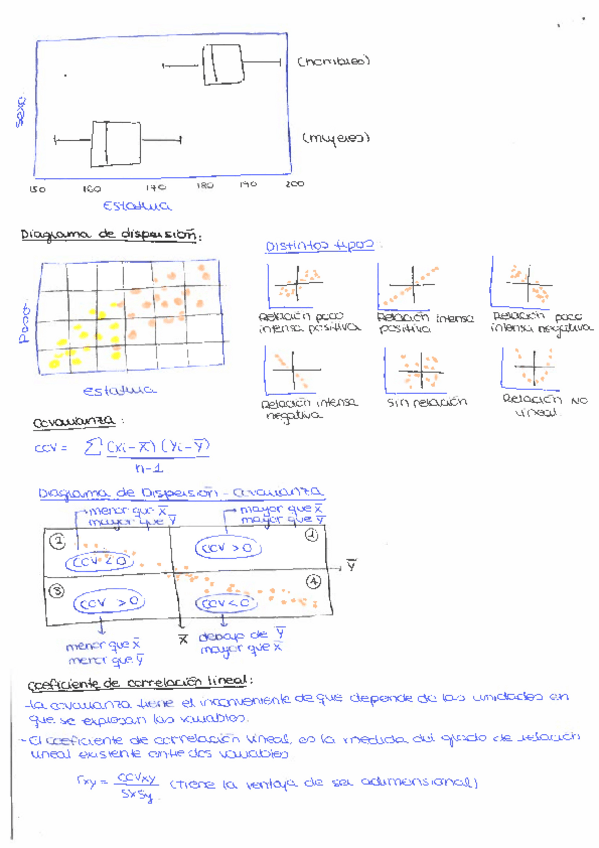 (hombres)
sexo
(mujeres)
150 160 140 180 190 200
Estatura
Diagrama de dispersión:
Distintos tipos:
Peso
estatura
Relación poco
intensa positiva
Relación intensa
positiva
Relación poco
intensa negativa
Relación intensa
negativa
Sin relación
Relación no
lineal
covarianza:
cov = Σ (xi - x̄) (yi - ȳ)
n-1
Diagrama de Dispersión - covarianza
menor que x̄
mayor que ȳ
mayor que x̄
mayor que ȳ
② cov < 0
cov > 0 ①
ȳ
③ cov > 0
cov < 0 ④
menor que x̄
menor que ȳ
x̄
debajo de ȳ
mayor que x̄
coeficiente de correlación lineal:
-la covarianza tiene el inconveniente de que depende de las unidades en
que se expresan las variables.
- El coeficiente de correlación lineal, es la medida del grado de relación
lineal existente entre dos variables
rxy = covxy (tiene la ventaja de ser adimensional)
sxsy